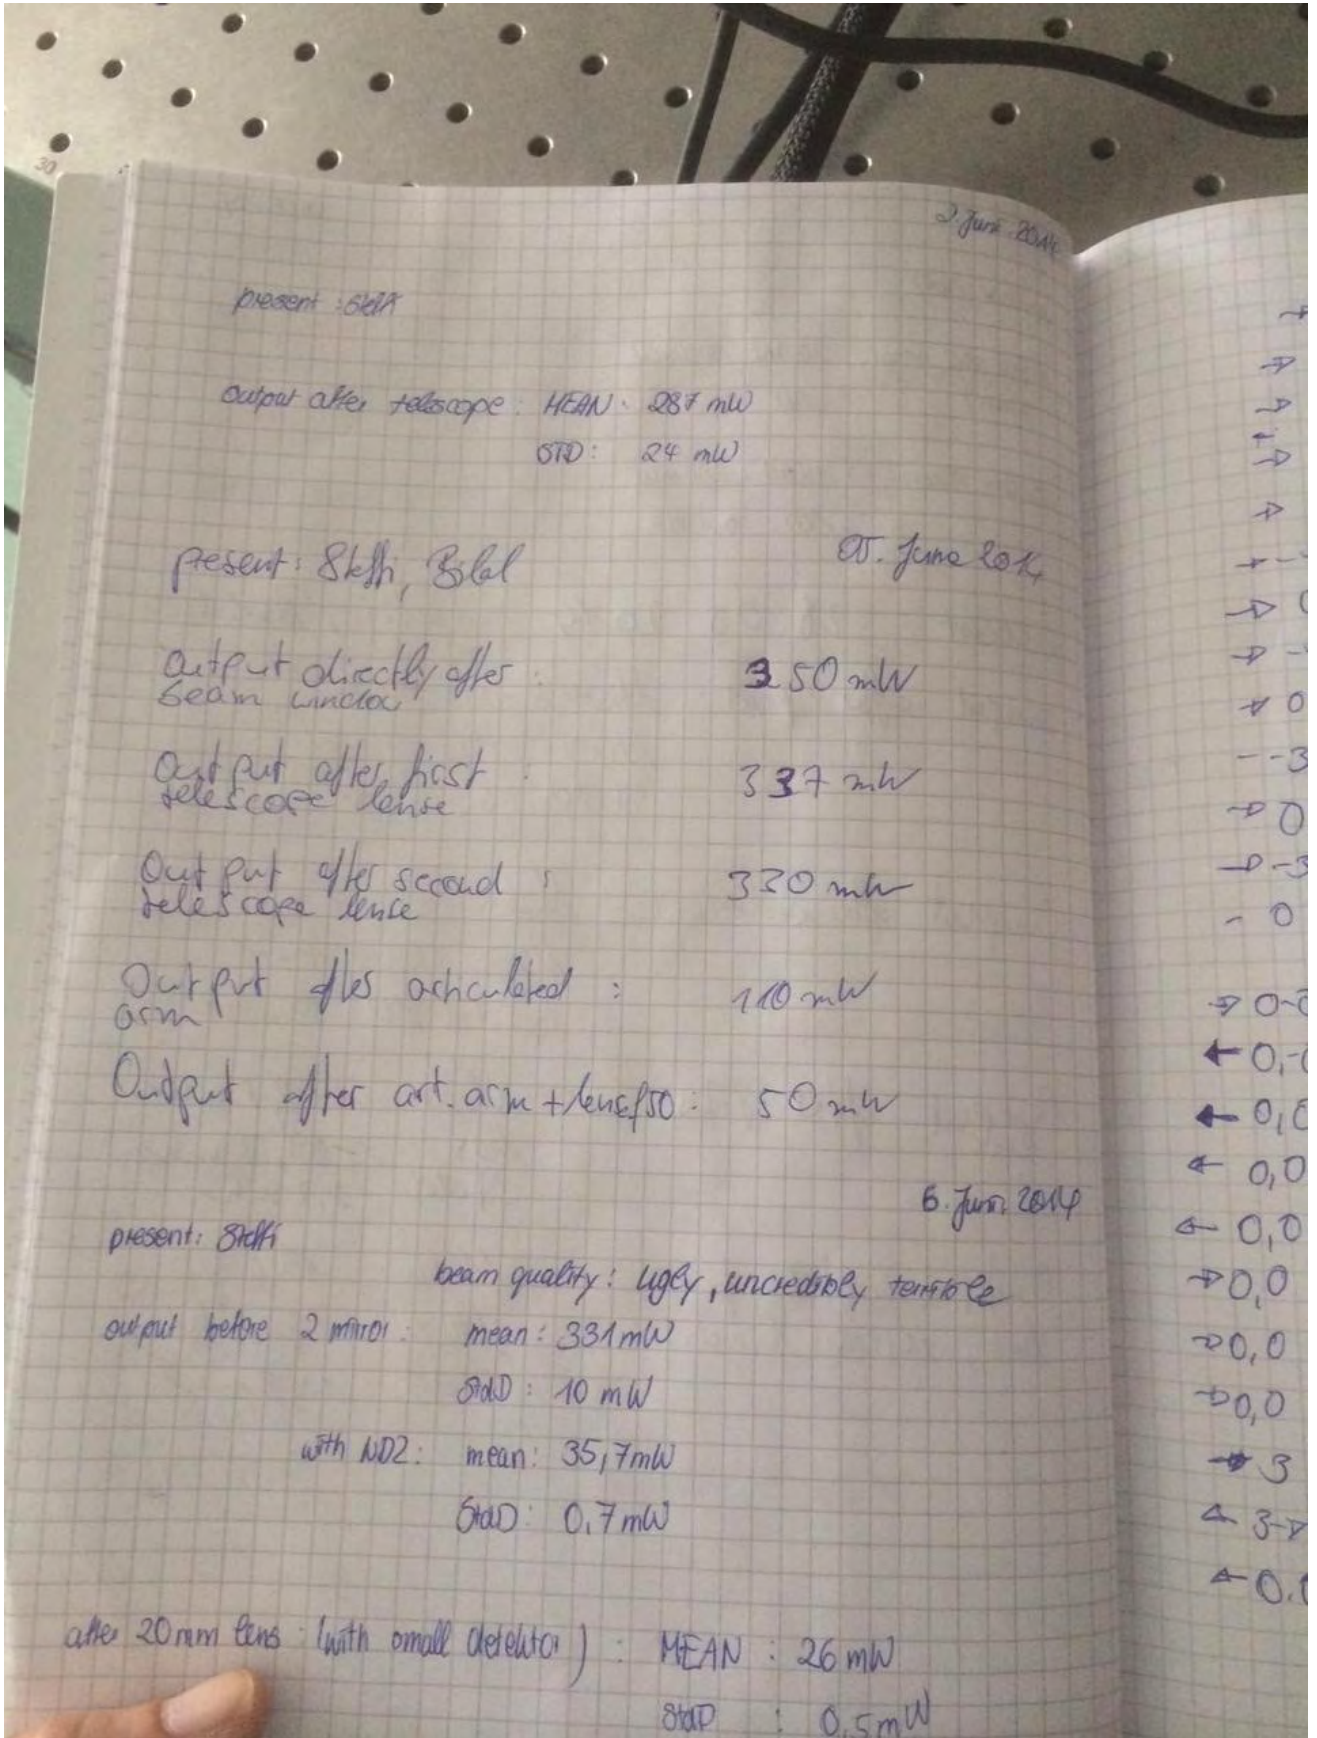 30
2. Juni 2014
present : Steffi
output after telescope : MEAN : 287 mW
STD : 24 mW
present : Steffi, Bilal 05. June 2014
Output directly after : 350 mW
beam window
Output after first : 337 mW
telescope lense
Output after second : 330 mW
telescope lense
Output after articulated : 110 mW
arm
Output after art. arm + lense f50 : 50 mW
6. Juni 2014
present : Steffi
beam quality : ugly, uncredibly terrible
output before 2 mirror : mean : 331 mW
StdD : 10 mW
with ND2 : mean : 35,7 mW
StdD : 0,7 mW
after 20 mm lens (with small detektor) : MEAN : 26 mW
StdD : 0,5 mW
→
→
→
→
→
→ 0
→ -
→ 0
--3
→ 0
→ -3
- 0
→ 0-0
← 0,-0
← 0,0
← 0,0
← 0,0
→ 0,0
→ 0,0
→ 0,0
→ 3
← 3-
← 0.0